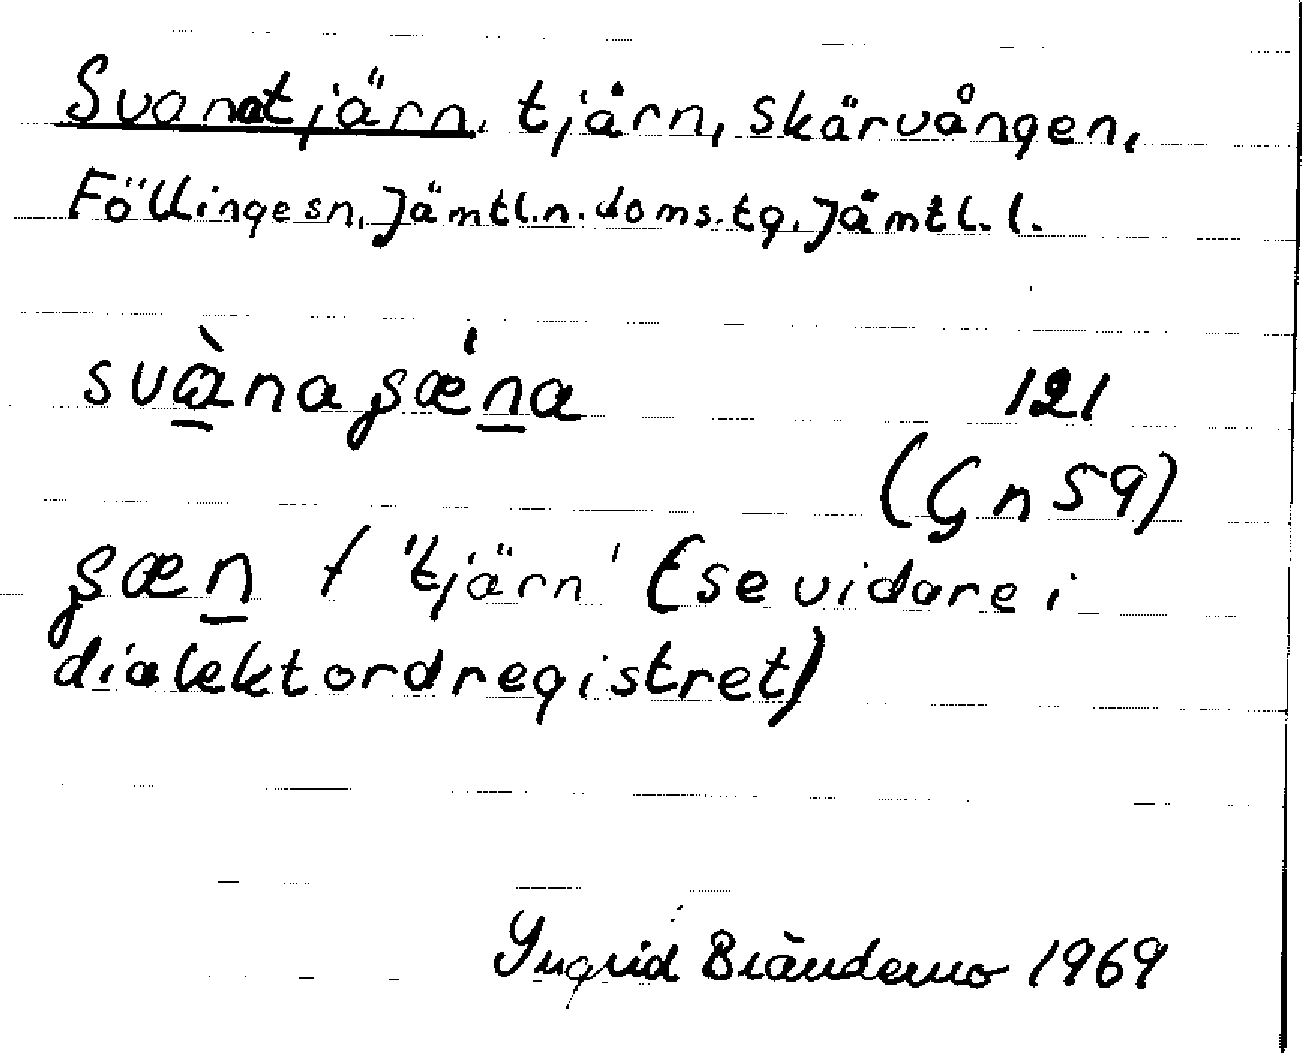 Svanatjärn, tjärn, Skärvången,
Föllinge sn, Jämtl. n. doms. tg, Jämtl. l.
svànaʂǽna 121
(Gn 59)
ʂæn f 'tjärn' (se vidare i
dialektordregistret)
Ingrid Brändemo 1969